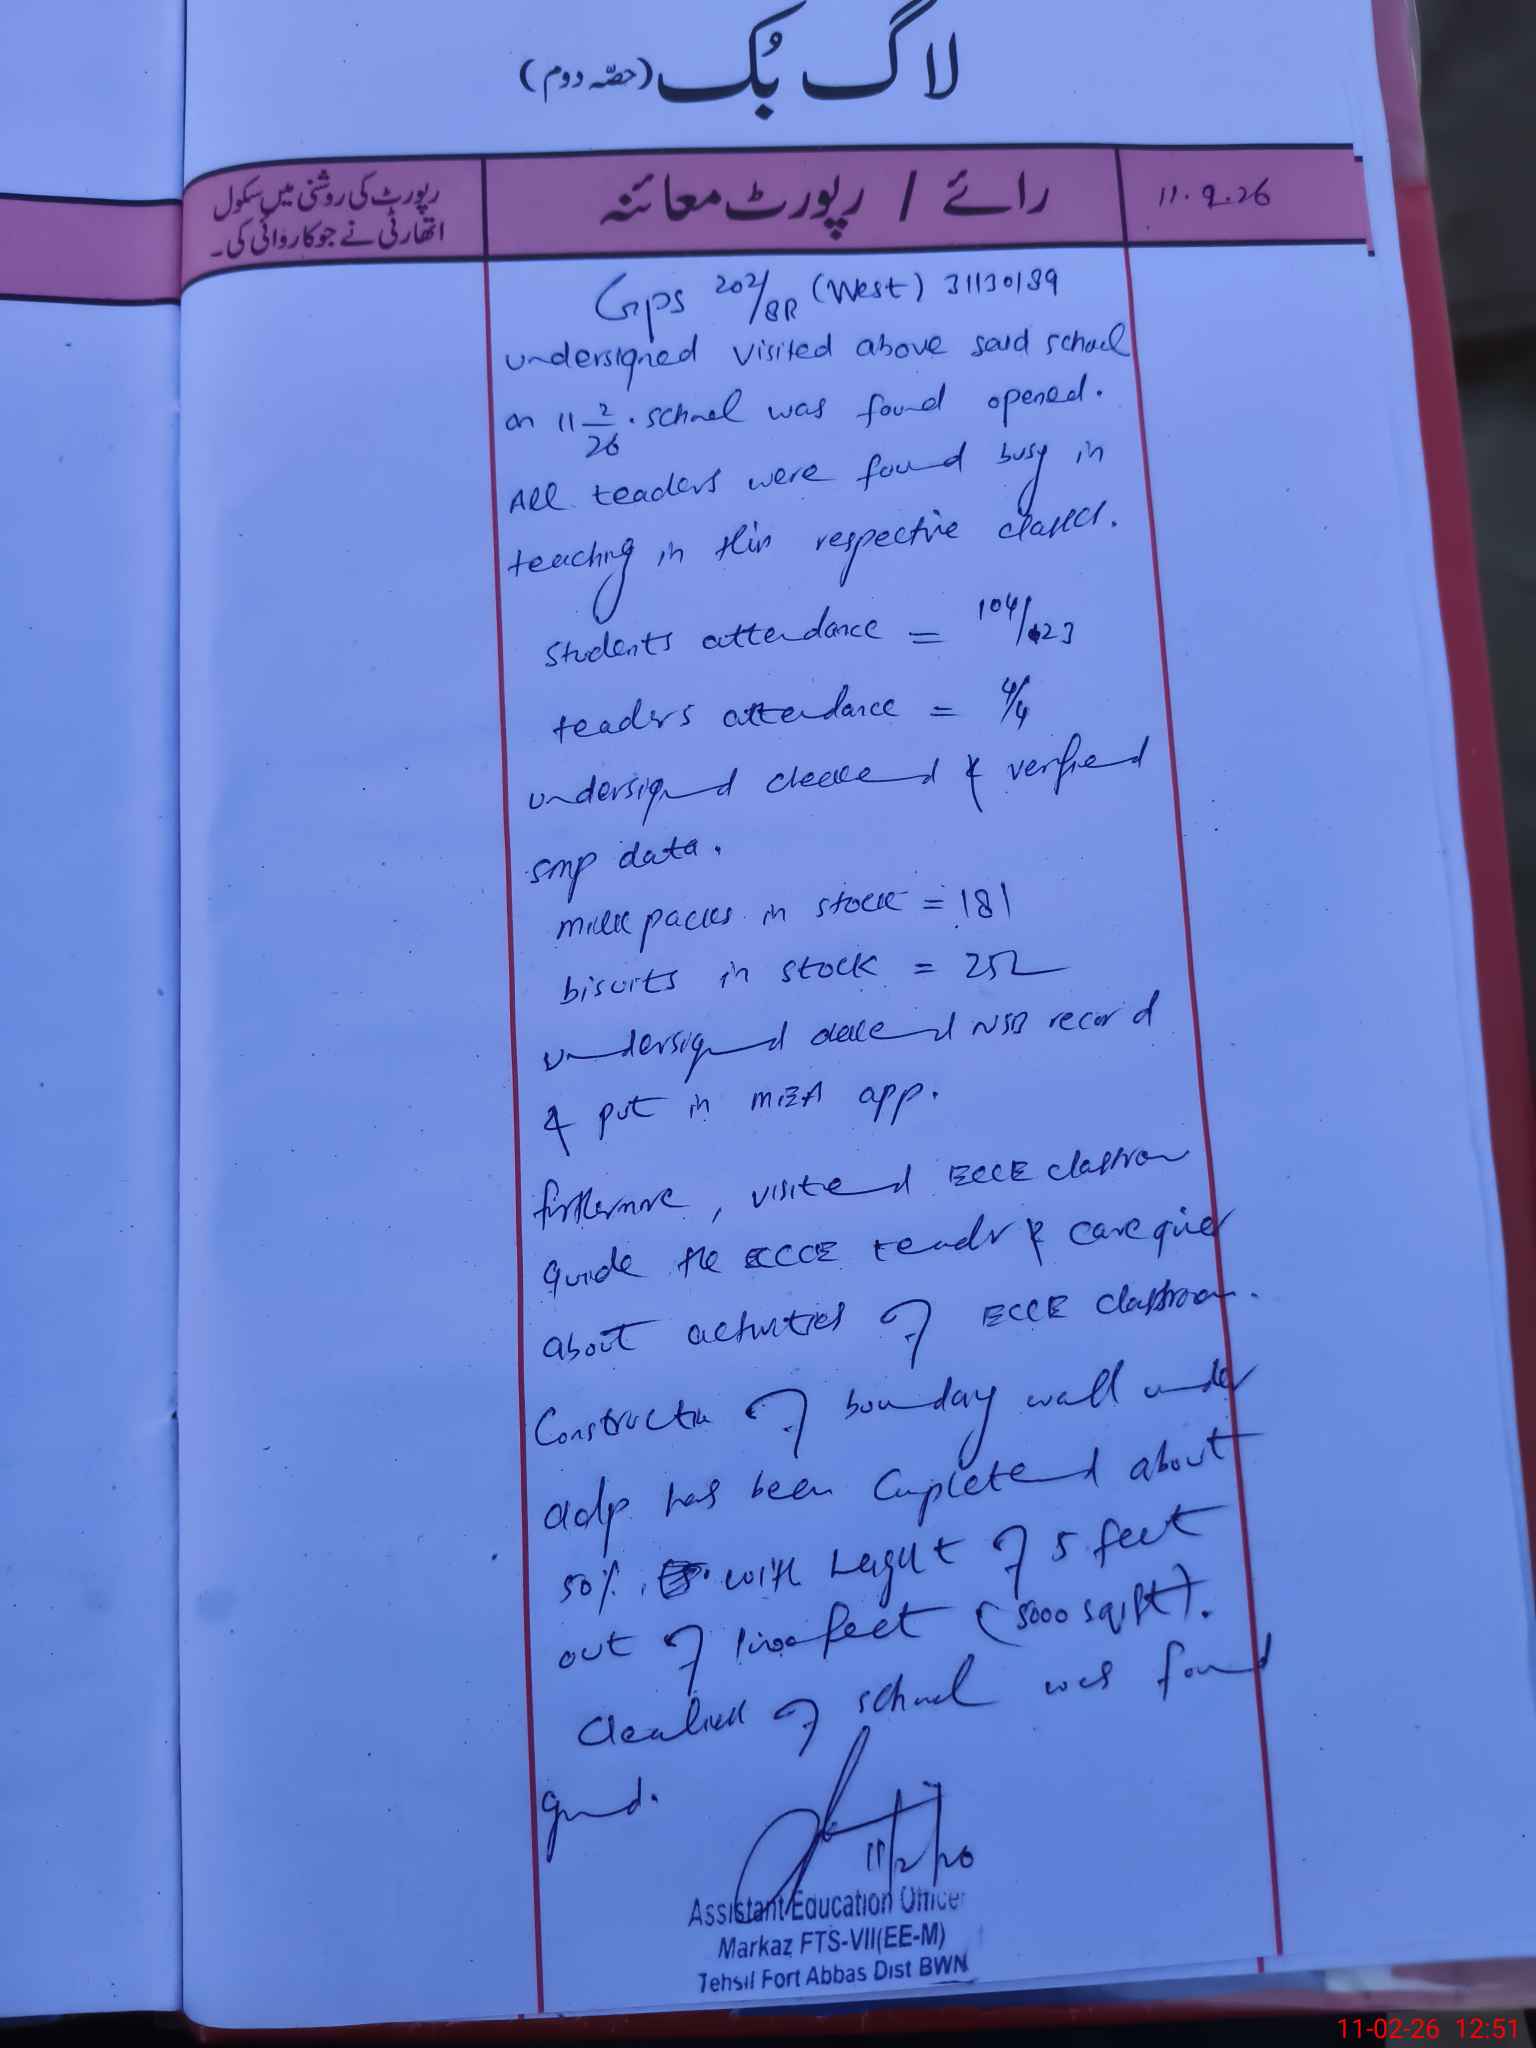 لاگ بُک (حصّہ دوم)
رپورٹ کی روشنی میں سکول
اتھارٹی نے جو کاروائی کی۔
رائے / رپورٹ معائنہ
11.2.26
GPS 202/8R (West) 31130139
undersigned visited above said school
on 11 2/26. school was found opened.
All teachers were found busy in
teaching in their respective classes.
Students attendance = 104/123
teachers attendance = 4/4
undersigned checked & verified
SMP data.
milk packs in stock = 181
biscuits in stock = 252
undersigned checked NSB record
& put in MEA app.
furthermore, visited ECCE classroom
guide the ECCE teacher & care giver
about activities of ECCE classroom.
Construction of boundary wall under
adp has been completed about
50%. with height of 5 feet
out of feet (5000 sqft).
Cleanliness of school was found
good.
11/2/26
Assistant Education Officer
Markaz FTS-VII(EE-M)
Tehsil Fort Abbas Dist BWN
11-02-26 12:51